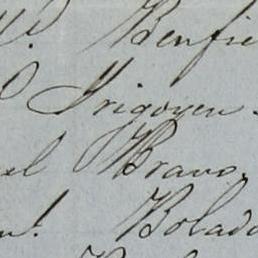 Benfie
Yrigoyen.
el Bravo.
Bolado